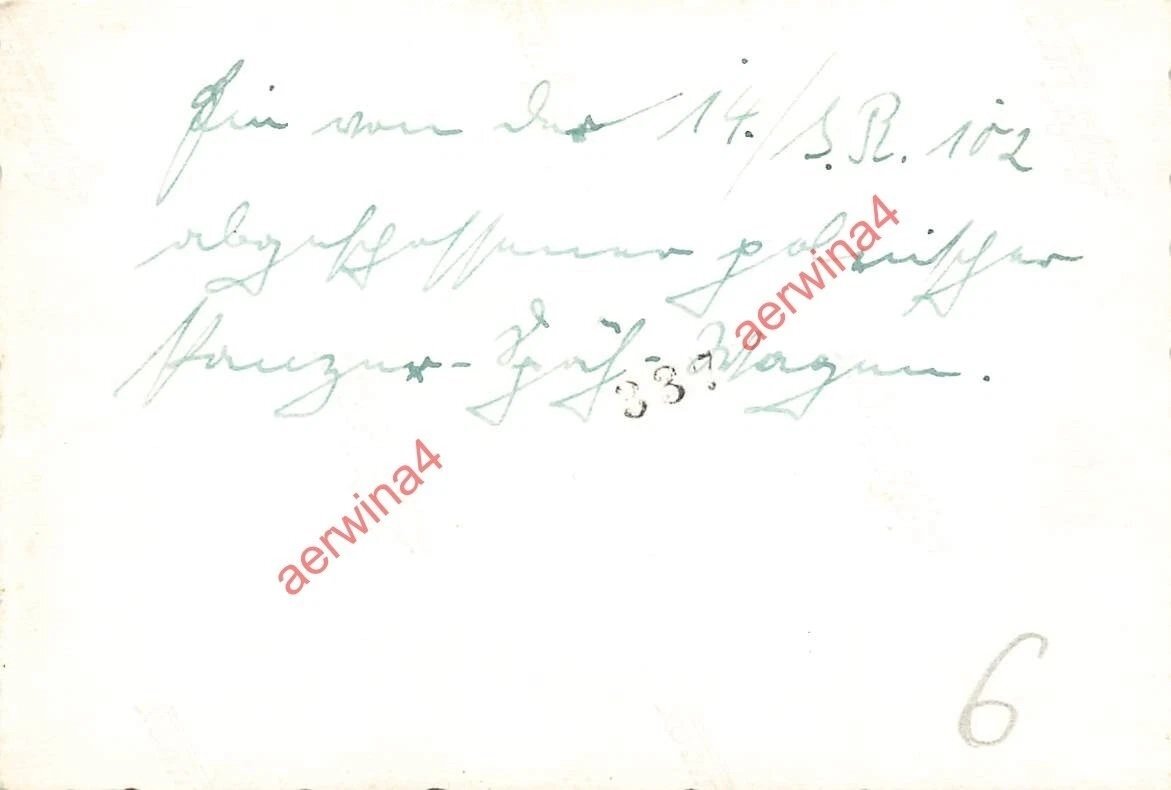 Ein von der 14./J.R. 102
abgeschossener polnischer
Panzer-Späh-Wagen.
339
aerwina4
aerwina4
6